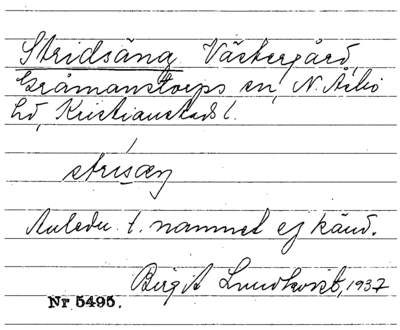 Stridsäng Västergård,
Gråmanstorps sn, N. Åsbo
hd, Kristianstads l.
Anledn. t. namnet ej känd.
Birgit Lundkvist, 1937
Nr 5495.